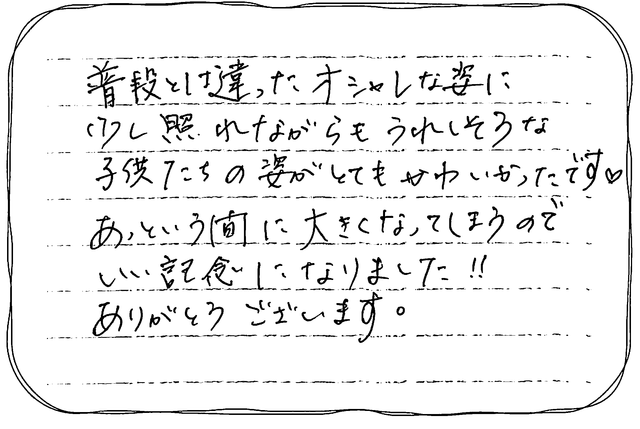 普段とは違ったオシャレな姿に
少し照れながらもうれしそうな
子供たちの姿がとてもかわいかったです♡
あっという間に大きくなってしまうので
いい記念になりました!!
ありがとうございます。